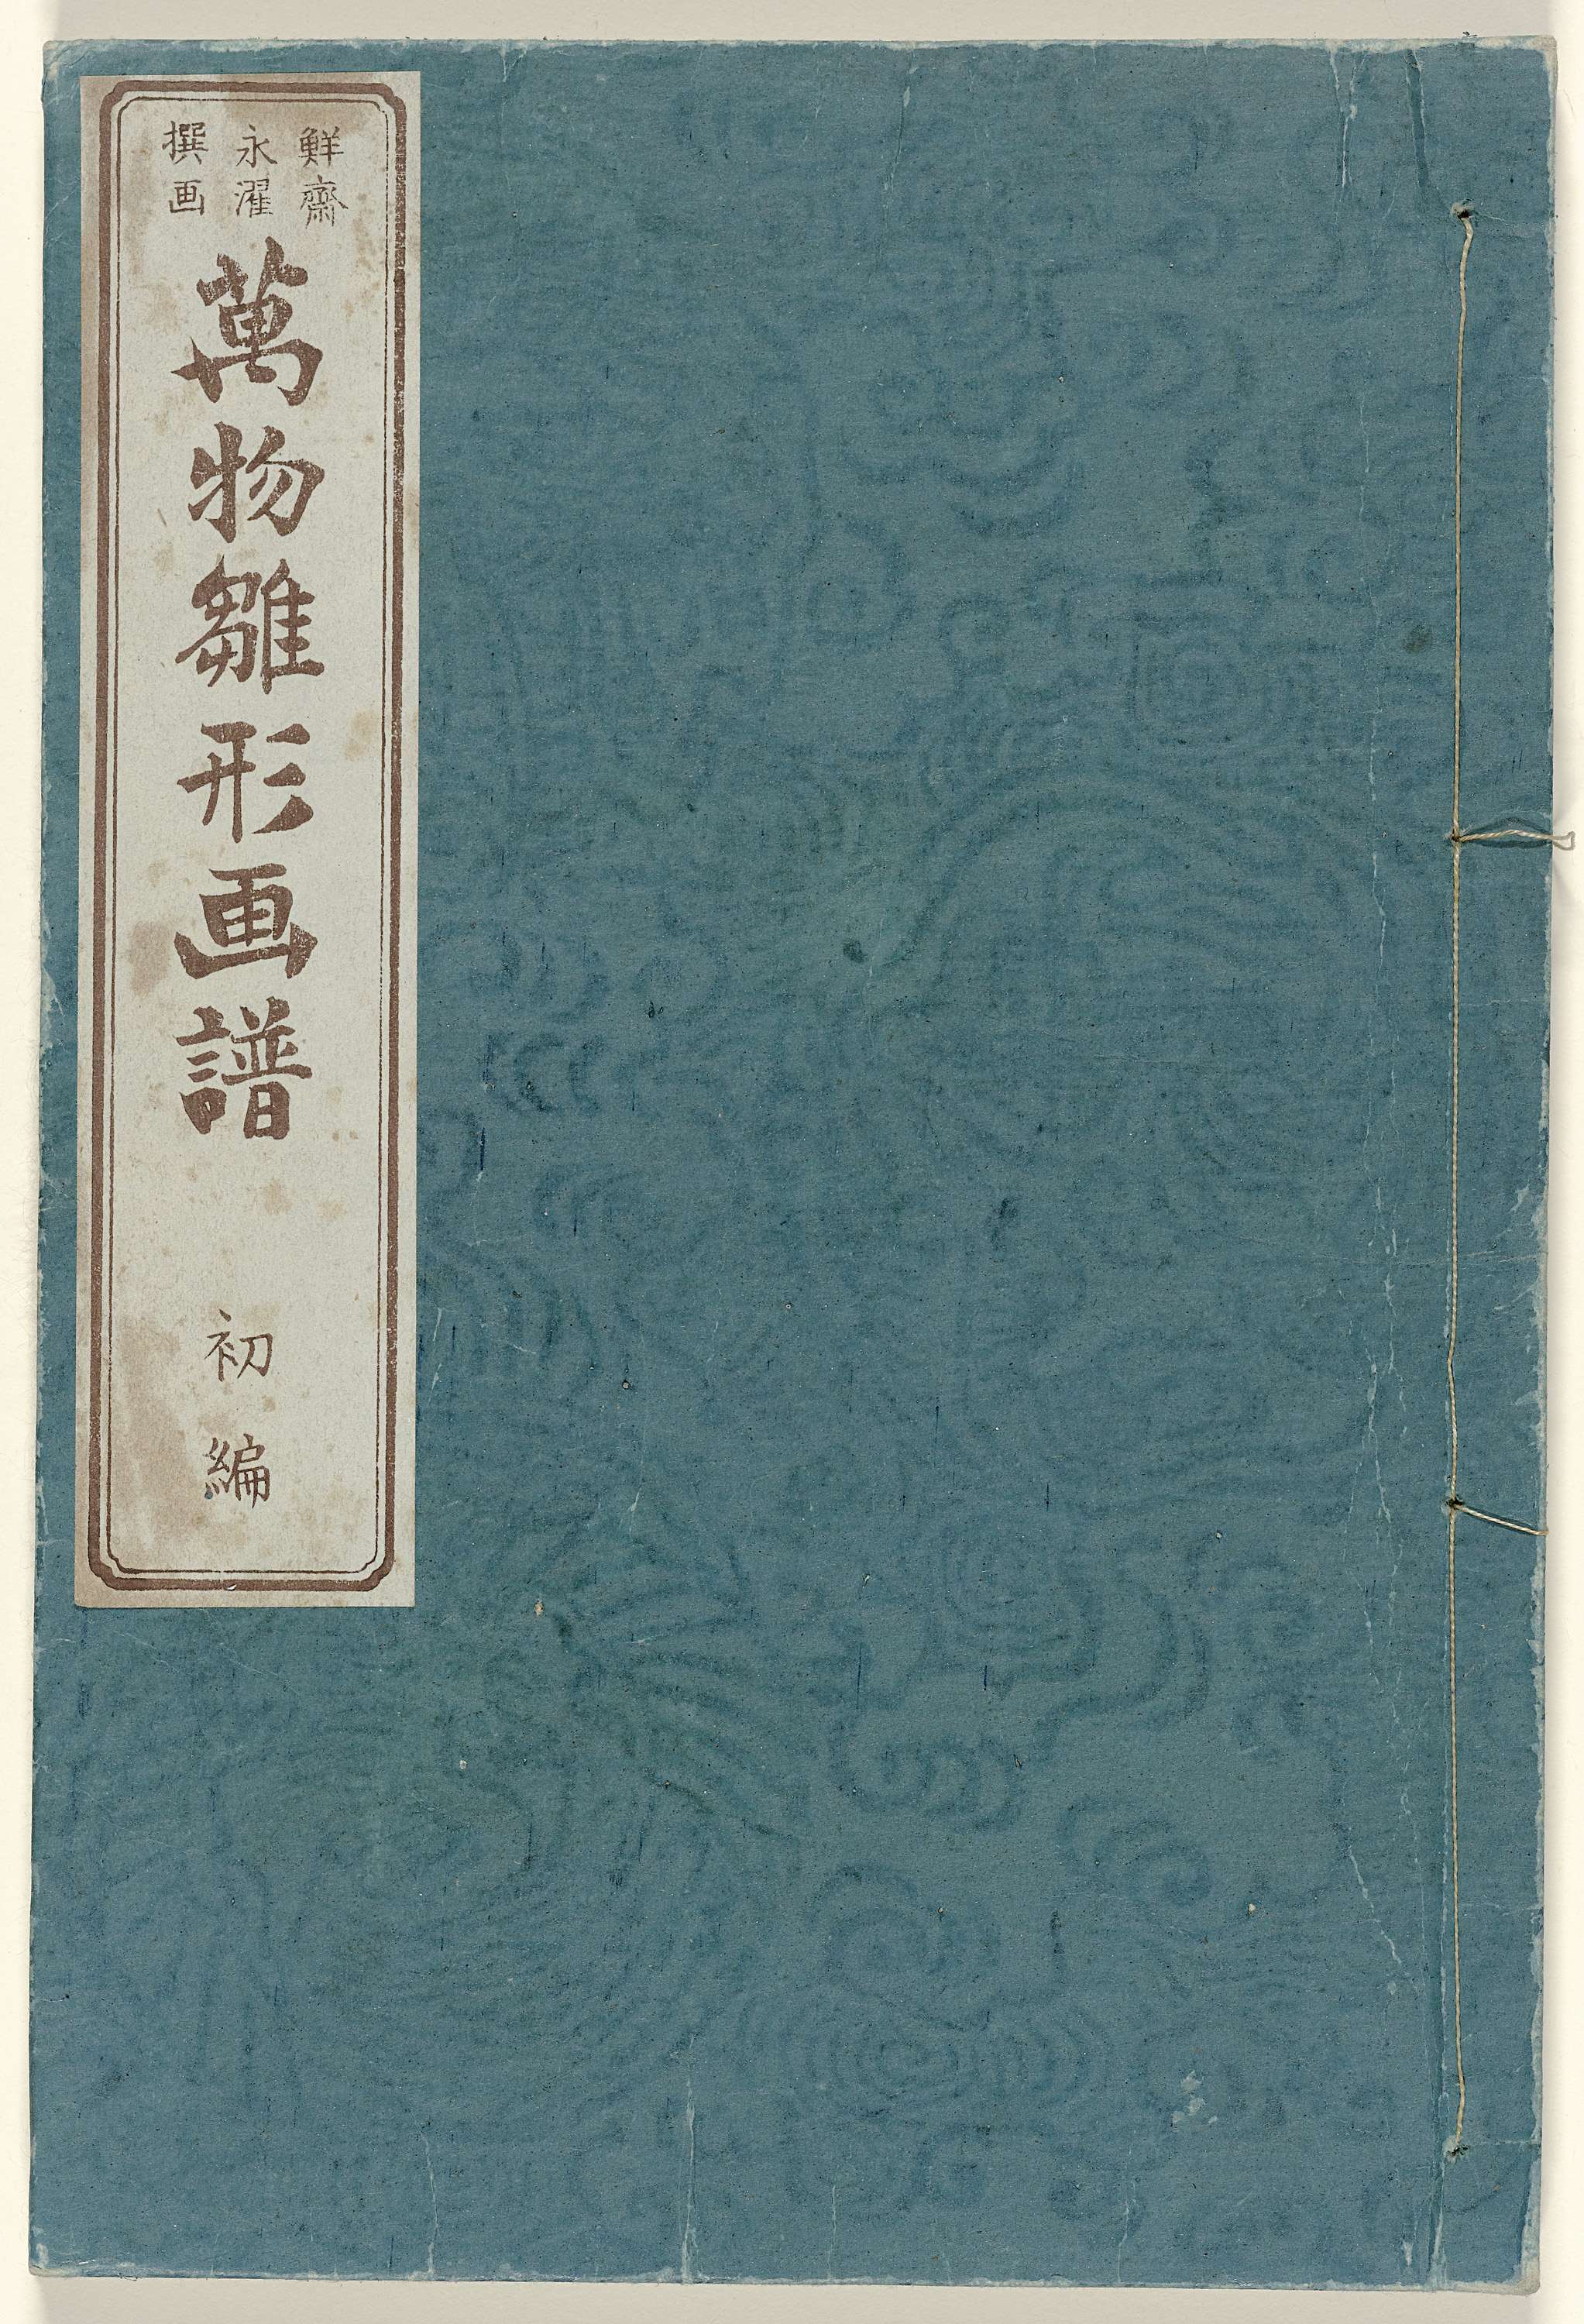 鮮齋
永濯
撰画
萬物雛形画譜
初編